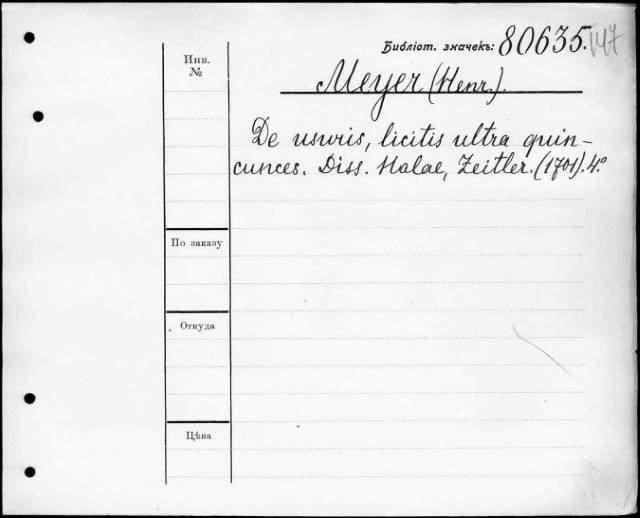 Библіот. значекъ: 80635.
Инв.
№
Meyer (Henr.).
De usuris, licitis ultra quin-
cunces. Diss. Halae, Zeitler. (1701). 4º
По заказу
Откуда
Цѣна